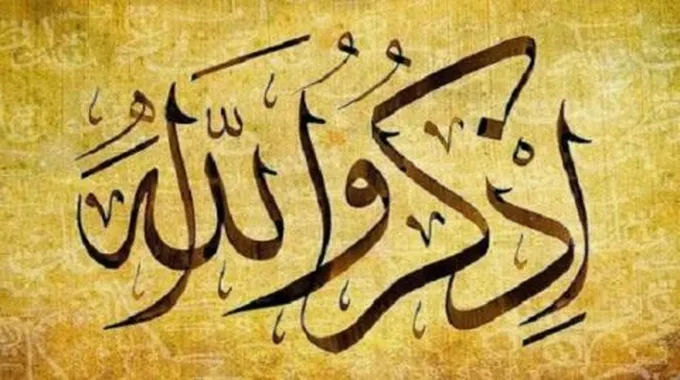 اِذْكُرُوا اللّهَ